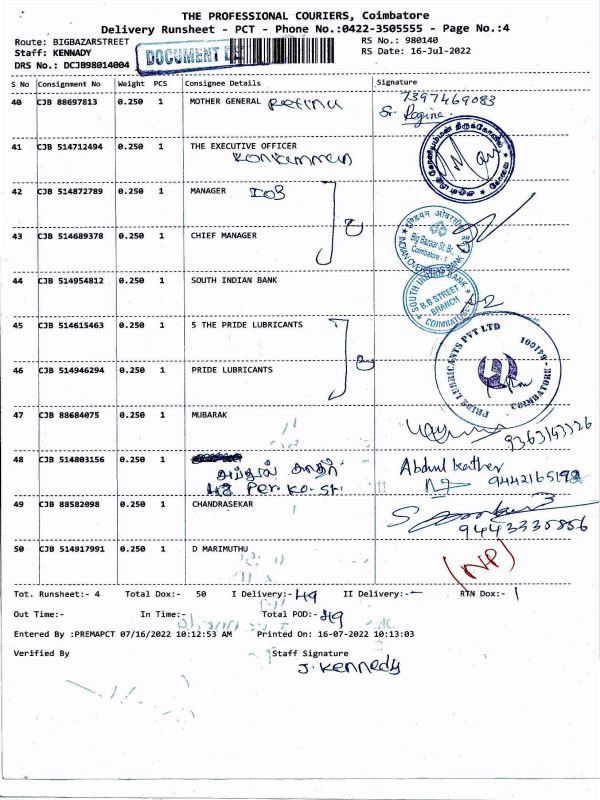 THE PROFESSIONAL COURIERS, Coimbatore
Delivery Runsheet - PCT - Phone No.:0422-3505555 - Page No.:4
Route: BIGBAZARSTREET
Staff: KENNADY
DRS No.: DCJB98014004
DOCUMENT
RS No.: 980140
RS Date: 16-Jul-2022
S No Consignment No Weight PCS Consignee Details Signature
40 CJB 88697813 0.250 1 MOTHER GENERAL 7397469083
Sr. Regina
41 CJB 514712494 0.250 1 THE EXECUTIVE OFFICER
42 CJB 514872789 0.250 1 MANAGER IOB
43 CJB 514689378 0.250 1 CHIEF MANAGER
INDIAN OVERSEAS BANK
Big Bazaar St. Br.
Coimbatore - 1
44 CJB 514954812 0.250 1 SOUTH INDIAN BANK
SOUTH INDIAN BANK
B.B STREET
BRANCH
COIMBATORE
45 CJB 514615463 0.250 1 5 THE PRIDE LUBRICANTS
46 CJB 514946294 0.250 1 PRIDE LUBRICANTS
PRIDE LUBRICANTS PVT LTD
COIMBATORE - 641001
47 CJB 88684075 0.250 1 MUBARAK
9363143326
48 CJB 514803156 0.250 1 அப்துல் காதர் Abdul kather
48 Per. Ko. St. 9442165192
49 CJB 88582098 0.250 1 CHANDRASEKAR
9443335856
50 CJB 514917991 0.250 1 D MARIMUTHU (NP)
Tot. Runsheet:- 4 Total Dox:- 50 I Delivery:- 49 II Delivery:- - RTN Dox:- 1
Out Time:- In Time:- Total POD:- 49
Entered By :PREMAPCT 07/16/2022 10:12:53 AM Printed On: 16-07-2022 10:13:03
Verified By Staff Signature
J. Kennedy